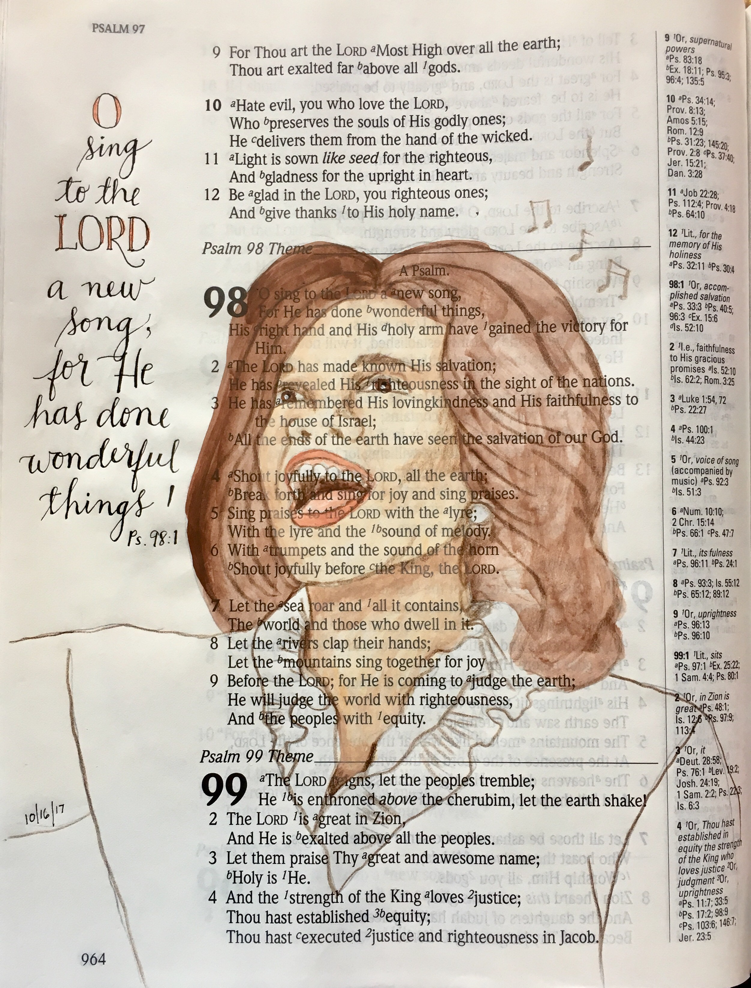 PSALM 97
9 For Thou art the LORD aMost High over all the earth;
Thou art exalted far babove all 1gods.
10 aHate evil, you who love the LORD,
Who bpreserves the souls of His godly ones;
He cdelivers them from the hand of the wicked.
11 aLight is sown like seed for the righteous,
And bgladness for the upright in heart.
12 Be aglad in the LORD, you righteous ones;
And bgive thanks 1to His holy name.
Psalm 98 Theme
A Psalm.
98 O sing to the LORD a anew song,
For He has done bwonderful things,
His cright hand and His dholy arm have 1gained the victory for
Him.
2 aThe LORD has made known His salvation;
He has brevealed His 1righteousness in the sight of the nations.
3 He has aremembered His lovingkindness and His faithfulness to
the house of Israel;
bAll the ends of the earth have seen the salvation of our God.
4 aShout joyfully to the LORD, all the earth;
bBreak forth and sing for joy and sing praises.
5 Sing praises to the LORD with the alyre;
With the lyre and the 1bsound of melody.
6 With atrumpets and the sound of the horn
bShout joyfully before cthe King, the LORD.
7 Let the asea roar and 1all it contains,
The bworld and those who dwell in it.
8 Let the arivers clap their hands;
Let the bmountains sing together for joy
9 Before the LORD; for He is coming to ajudge the earth;
He will judge the world with righteousness,
And bthe peoples with 1equity.
Psalm 99 Theme
99 aThe LORD reigns, let the peoples tremble;
He 1bis enthroned above the cherubim, let the earth shake!
2 The LORD 1is agreat in Zion,
And He is bexalted above all the peoples.
3 Let them praise Thy agreat and awesome name;
bHoly is 1He.
4 And the 1strength of the King aloves 2justice;
Thou hast established 3bequity;
Thou hast cexecuted 2justice and righteousness in Jacob.
O
sing
to the
LORD
a new
song;
for He
has done
wonderful
things!
Ps. 98:1
10/16/17
964
9 1Or, supernatural
powers
aPs. 83:18
bEx. 18:11; Ps. 95:3;
96:4; 135:5
10 aPs. 34:14;
Prov. 8:13;
Amos 5:15;
Rom. 12:9
bPs. 31:23; 145:20;
Prov. 2:8 cPs. 37:40;
Jer. 15:21;
Dan. 3:28
11 aJob 22:28;
Ps. 112:4; Prov. 4:18
bPs. 64:10
12 1Lit., for the
memory of His
holiness
aPs. 32:11 bPs. 30:4
98:1 1Or, accom-
plished salvation
aPs. 33:3 bPs. 40:5;
96:3 cEx. 15:6
dIs. 52:10
2 1I.e., faithfulness
to His gracious
promises aIs. 52:10
bIs. 62:2; Rom. 3:25
3 aLuke 1:54, 72
bPs. 22:27
4 aPs. 100:1
bIs. 44:23
5 1Or, voice of song
(accompanied by
music) aPs. 92:3
bIs. 51:3
6 aNum. 10:10;
2 Chr. 15:14
bPs. 66:1 cPs. 47:7
7 1Lit., its fulness
aPs. 96:11 bPs. 24:1
8 aPs. 93:3; Is. 55:12
bPs. 65:12; 89:12
9 1Or, uprightness
aPs. 96:13
bPs. 96:10
99:1 1Lit., sits
aPs. 97:1 bEx. 25:22;
1 Sam. 4:4; Ps. 80:1
2 1Or, in Zion is
great aPs. 48:1;
Is. 12:6 bPs. 97:9;
113:4
3 1Or, it
aDeut. 28:58;
Ps. 76:1 bLev. 19:2;
Josh. 24:19;
1 Sam. 2:2; Ps. 22:3;
Is. 6:3
4 1Or, Thou hast
established in
equity the strength
of the King who
loves justice 2Or,
judgment 3Or,
uprightness
aPs. 11:7; 33:5
bPs. 17:2; 98:9
cPs. 103:6; 146:7;
Jer. 23:5